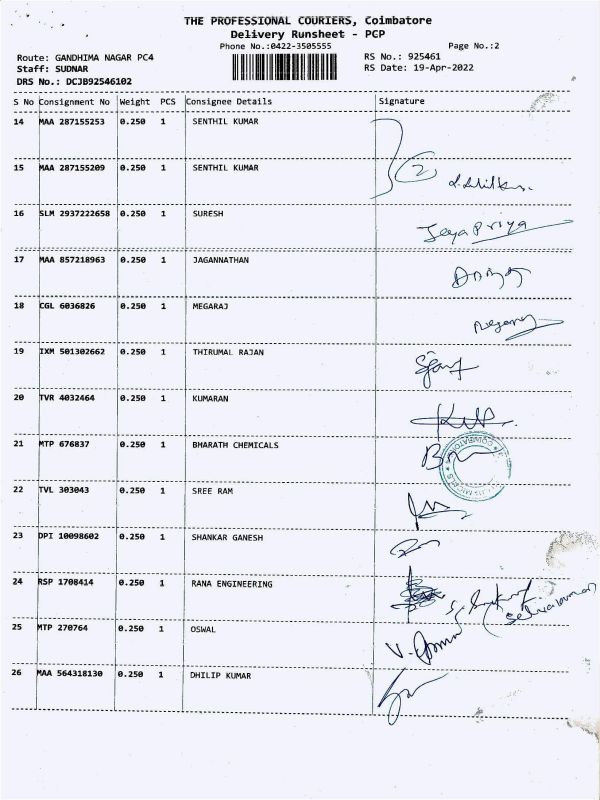 THE PROFESSIONAL COURIERS, Coimbatore
Delivery Runsheet - PCP
Phone No.:0422-3505555
Page No.:2
Route: GANDHIMA NAGAR PC4
RS No.: 925461
Staff: SUDNAR
RS Date: 19-Apr-2022
DRS No.: DCJB92546102
S No Consignment No Weight PCS Consignee Details Signature
14 MAA 287155253 0.250 1 SENTHIL KUMAR
15 MAA 287155209 0.250 1 SENTHIL KUMAR
2
16 SLM 2937222658 0.250 1 SURESH
Jeyapriya
17 MAA 857218963 0.250 1 JAGANNATHAN
18 CGL 6036826 0.250 1 MEGARAJ
19 IXM 501302662 0.250 1 THIRUMAL RAJAN
20 TVR 4032464 0.250 1 KUMARAN
21 MTP 676837 0.250 1 BHARATH CHEMICALS
22 TVL 303043 0.250 1 SREE RAM
23 DPI 10098602 0.250 1 SHANKAR GANESH
24 RSP 1708414 0.250 1 RANA ENGINEERING
25 MTP 270764 0.250 1 OSWAL
26 MAA 564318130 0.250 1 DHILIP KUMAR